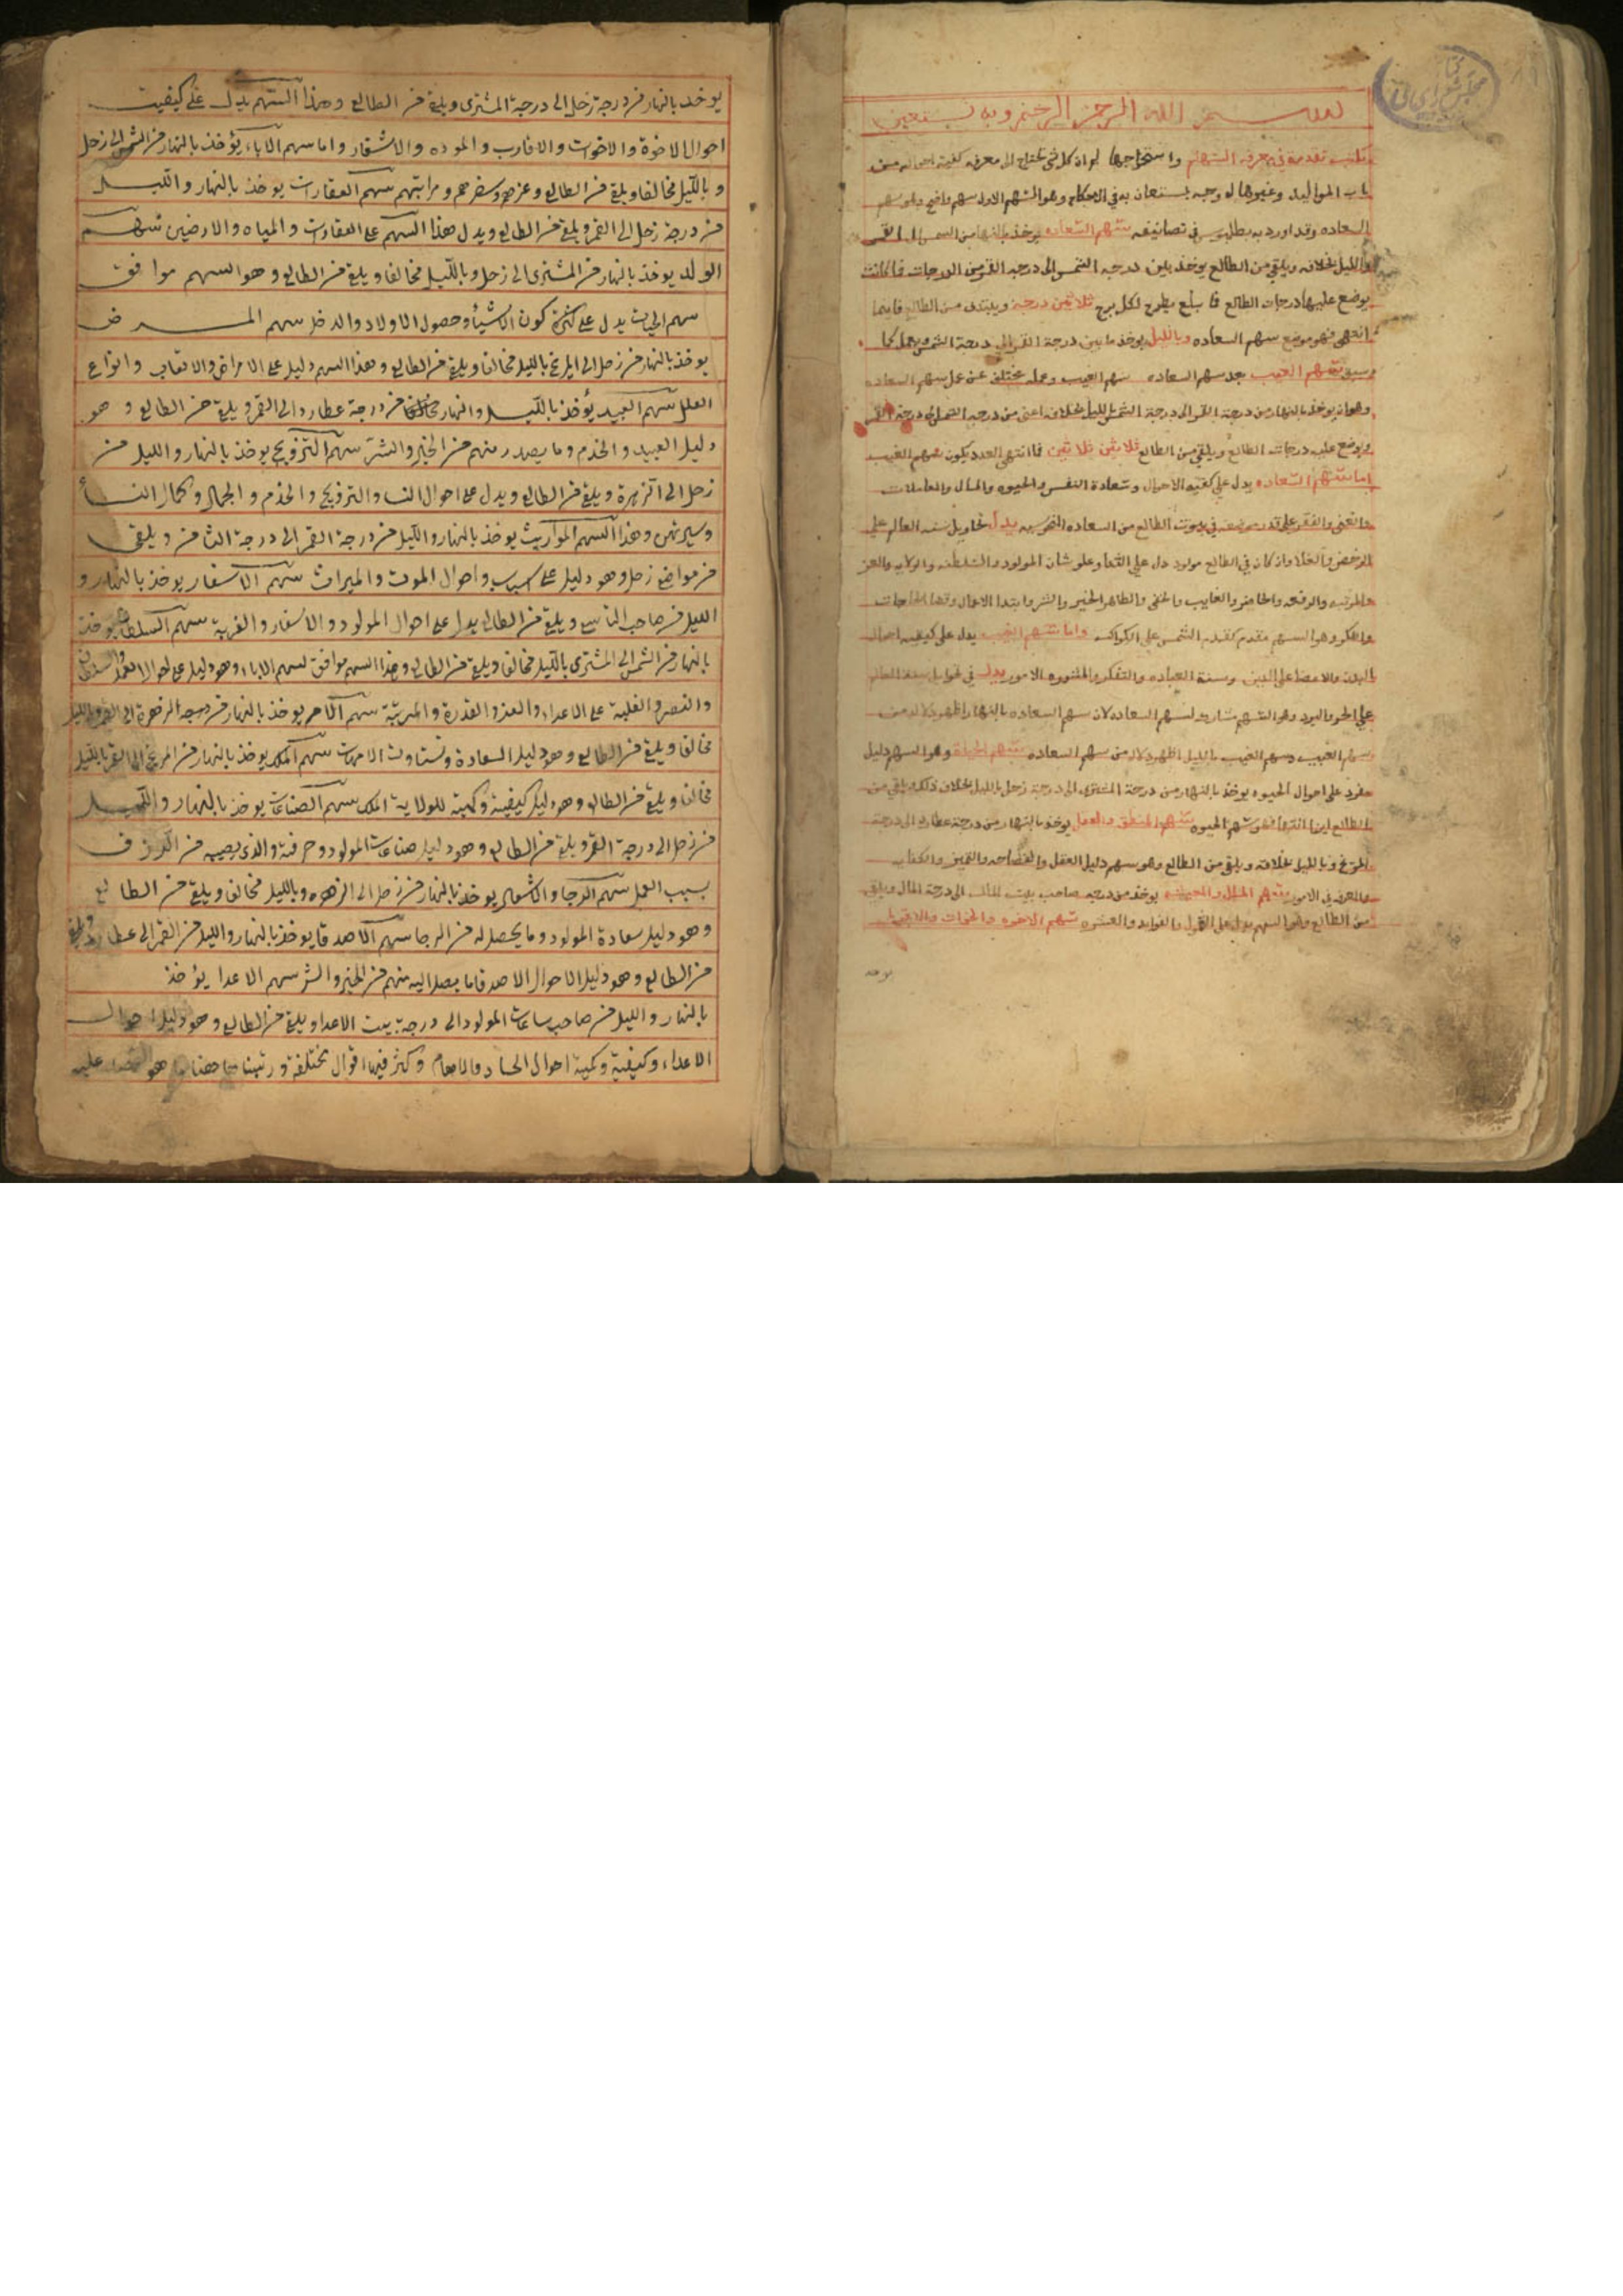 بسم الله الرحمن الرحيم وبه نستعين
تقدمة في معرفه السهام واستخراجها محتاج الى معرفه كيفية احواله من
باب المواليد وغيرها يستعان به في الاحكام وهو السهم الاول سهم واضح وهو سهم
السعاده وقد اورد به بطلميوس في تصانيفه سهم السعاده يوخذ بالنهار من الشمس الى القمر
والليل بخلافه ويلقي من الطالع يوخذ بين درجه الشمس الى درجه القمر من الدرجات فما كانت
يوضع عليها درجات الطالع فما بلغ يطرح لكل برج ثلاثين درجة ويبتدى من الطالع فاينما
انتهى فهو موضع سهم السعاده وبالليل يوخذ ما بين درجة القمر الى درجة الشمس ويعمل كما
سبق سهم الغيب بعد سهم السعاده سهم الغيب وعمله مختلف عن عمل سهم السعاده
وهو ان يوخذ بالنهار من درجة القمر الى درجة الشمس بالليل بخلافه اعنى من درجه الشمس الى درجة القمر
ويوضع عليه درجات الطالع ويلقي من الطالع ثلاثين ثلاثين فما انتهى العدد يكون سهم الغيب
اما سهم السعاده يدل على كفيه الاحوال وسعادة النفس والحيوه والمال والمعاملات
والغنى والفقر على قدر موضعه في بيوت الطالع من السعاده النحوسيه يدل تحاويل سنه العالم على
الرخص والغلا وان كان في الطالع مولود دل على الثنا وعلو شان المولود والسلطنه والولايه والعز
والمرتبه والرفعه والحاضر والغايب والخفى والظاهر الخير والشر وابتدا الاعمال وقضا الحاجات
والفكر وهو السهم مقدم كتقدم الشمس على الكواكب واما سهم الغيب يدل على كيفيه احوال
البدن والاعضا على الدين وسنة العباده والتفكر والمشوره الامور يدل في تحاويل سنة العالم
على الحر والبرد وهو السهم مشارك لسهم السعاده لان سهم السعاده بالنهار اظهر دلاله من
سهم الغيب وسهم الغيب بالليل اظهر دلاله من سهم السعاده سهم الحياة وهو السهم دليل
مفرد على احوال الحيوه يوخذ بالنهار من درجة المشترى الى درجة زحل بالليل بخلاف ذلك ويلقي من
الطالع اينما انتهى فهو سهم الحيوه سهم المنطق والعقل يوخذ بالنهار من درجة عطارد الى درجة
المريخ وبالليل بخلافه ويلقي من الطالع وهو سهم دليل العقل والفصاحه والتميز والكتابه
والعرف في الامور سهم المال والمعيشه يوخذ من درجه صاحب بيت المال الى درجة المال ويلقى
من الطالع وهو السهم يدل على القول والفوايد والعشره سهم الاخوه والاخوات والاقربا
يوخذ
يوخذ بالنهار من درجة زحل الى درجة المشترى ويلقى من الطالع وهذا السهم يدل على كيفيت
احوال الاخوة والاخوات والاقارب والموده والاشقار واما سهم الاباء يؤخذ بالنهار من الشمس الى زحل
و بالليل مخالفا ويلقى من الطالع وعزهم وسفرهم ومراتبهم سهم العقارات يوخذ بالنهار والليل
من درجة زحل الى القمر ويلقى من الطالع ويدل هذا السهم على العقارات والمياه والارضين سهم
الولد يوخذ بالنهار من المشترى الى زحل وبالليل مخالفا ويلقى من الطالع وهو السهم موافق
سهم الحيات يدل على كثرة كون الاشياء وحصول الاولاد والدخل سهم المرض
يوخذ بالنهار من زحل الى المريخ بالليل مخالفا ويلقى من الطالع وهذا السهم دليل على الامراض والاتعاب وانواع
العلل سهم العبيد يؤخذ بالليل والنهار من درجة عطارد الى القمر ويلقى من الطالع وهو
دليل العبيد والخدم وما يصدر منهم من الخير والشر سهم التزويج يوخذ بالنهار والليل من
زحل الى الزهرة ويلقى من الطالع ويدل على احوال النسا والتزويج والخدم والجمال وكمال النساء
وسيرتهن وهذا السهم المواريث يوخذ بالنهار والليل من درجة القمر الى درجة الثامن ويلقى
من مواضع زحل وهو دليل على اسباب واحوال الموت والميراث سهم الاسفار يوخذ بالنهار و
الليل من صاحب التاسع ويلقى من الطالع يدل على احوال المولود والاسفار والغربة سهم السلطان يوخذ
بالنهار من الشمس الى المشترى بالليل مخالفا ويلقى من الطالع وهذا السهم موافق لسهم الاباء وهو دليل على احوال العمل والسلطان
والنصر والغلبة على الاعداء والعز والقدرة والمرتبة سهم الام يوخذ بالنهار من درجه الزهرة الى القمر وبالليل
مخالفا ويلقى من الطالع وهو دليل السعادة وتستاوت الامهات سهم الملك يوخذ بالنهار من المريخ الى القمر بالليل
مخالفا ويلقى من الطالع وهو دليل كيفية وكمية للولاية الملك سهم الصناعات يوخذ بالنهار والليل
من زحل الى درجة القمر ويلقى من الطالع وهو دليل صناعات المولود وحرفته والذى يصيبه من الرزق
بسبب العمل سهم الرجا والاشعار يوخذ بالنهار من زحل الى الزهره وبالليل مخالفا ويلقى من الطالع
وهو دليل سعادة المولود وما يحصل له من الرجا سهم الاصدقا يوخذ بالنهار والليل من القمر الى عطارد ويلقى
من الطالع وهو دليل الاحوال الاصدقا ما يصل اليه منهم من الخير والشر سهم الاعدا يؤخذ
بالنهار والليل من صاحب ساعات المولود الى درجة بيت الاعدا ويلقى من الطالع وهو دليل احوال
الاعداء وكيفية وكمية احوال الحساد وكثر فيها اقوال مختلفة ورتبنا هو عليه